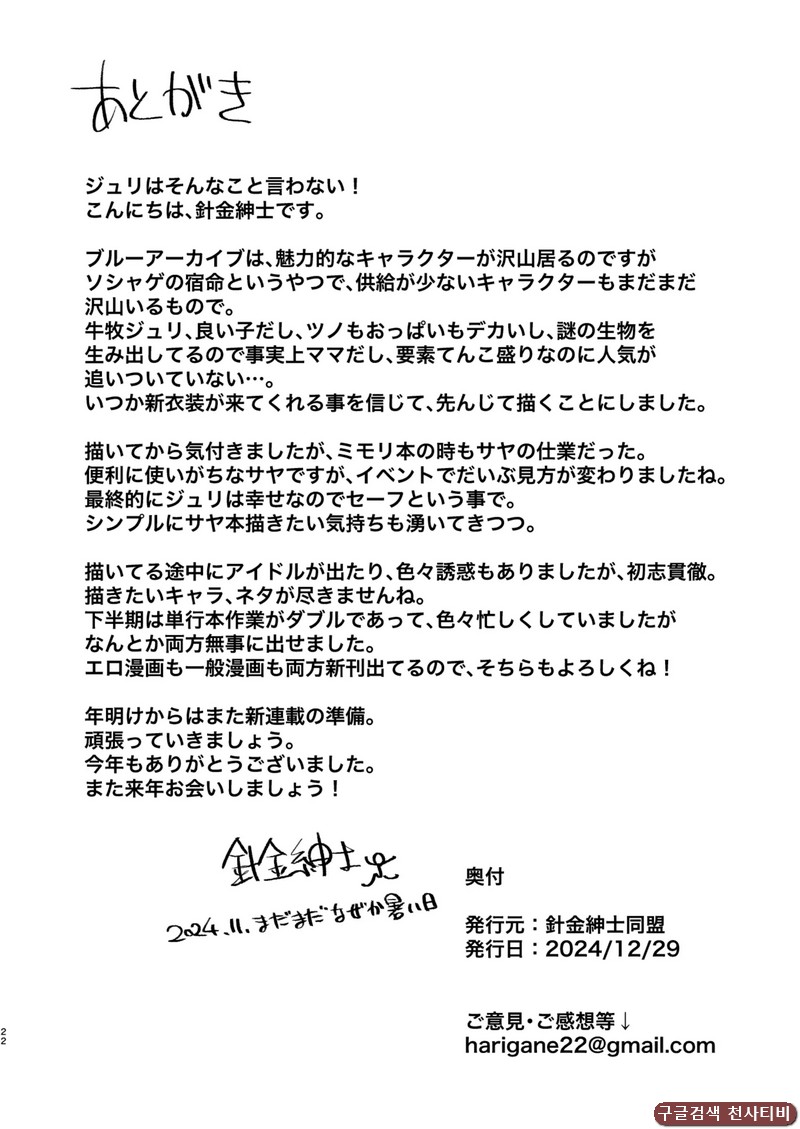 あとがき
ジュリはそんなこと言わない！
こんにちは、針金紳士です。
ブルーアーカイブは、魅力的なキャラクターが沢山居るのですが
ソシャゲの宿命というやつで、供給が少ないキャラクターもまだまだ
沢山いるもので。
牛牧ジュリ、良い子だし、ツノもおっぱいもデカいし、謎の生物を
生み出してるので事実上ママだし、要素てんこ盛りなのに人気が
追いついていない…。
いつか新衣装が来てくれる事を信じて、先んじて描くことにしました。
描いてから気付きましたが、ミモリ本の時もサヤの仕業だった。
便利に使いがちなサヤですが、イベントでだいぶ見方が変わりましたね。
最終的にジュリは幸せなのでセーフという事で。
シンプルにサヤ本描きたい気持ちも湧いてきつつ。
描いてる途中にアイドルが出たり、色々誘惑もありましたが、初志貫徹。
描きたいキャラ、ネタが尽きませんね。
下半期は単行本作業がダブルであって、色々忙しくしていましたが
なんとか両方無事に出せました。
エロ漫画も一般漫画も両方新刊出てるので、そちらもよろしくね！
年明けからはまた新連載の準備。
頑張っていきましょう。
今年もありがとうございました。
また来年お会いしましょう！
針金紳士
2024.11.まだまだなぜか暑い日
奥付
発行元：針金紳士同盟
発行日：2024/12/29
ご意見・ご感想等↓
harigane22@gmail.com
22
구글검색 천사티비